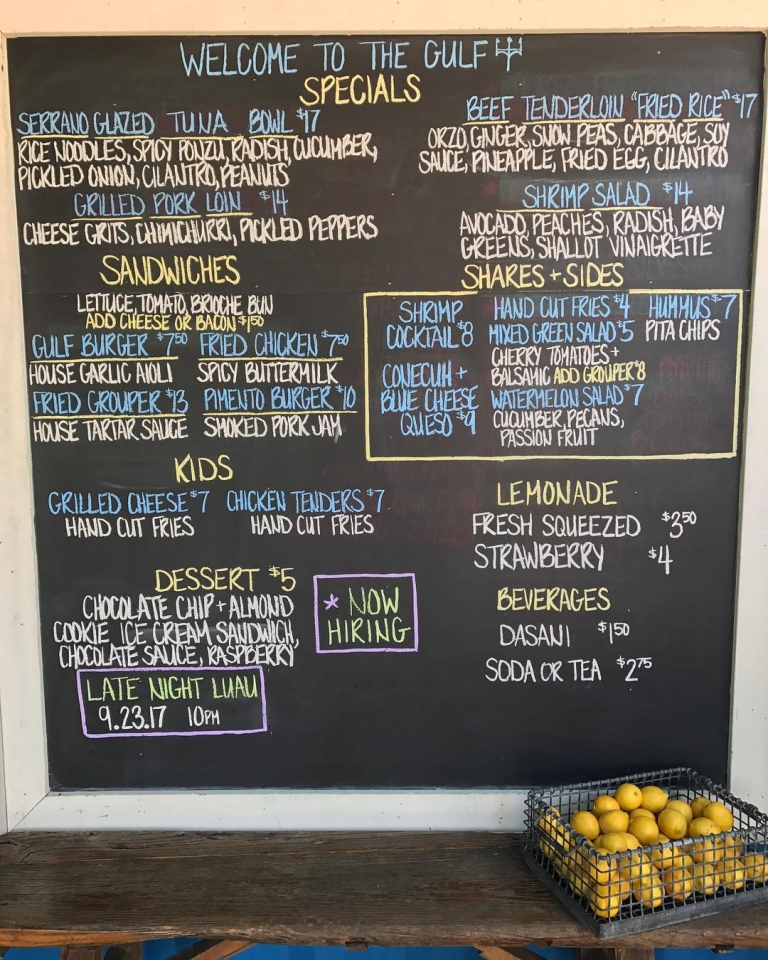 WELCOME TO THE GULF
SPECIALS
SERRANO GLAZED TUNA BOWL $17
RICE NOODLES, SPICY PONZU, RADISH, CUCUMBER,
PICKLED ONION, CILANTRO, PEANUTS
GRILLED PORK LOIN $14
CHEESE GRITS, CHIMICHURRI, PICKLED PEPPERS
BEEF TENDERLOIN "FRIED RICE" $17
ORZO, GINGER, SNOW PEAS, CABBAGE, SOY
SAUCE, PINEAPPLE, FRIED EGG, CILANTRO
SHRIMP SALAD $14
AVOCADO, PEACHES, RADISH, BABY
GREENS, SHALLOT VINAIGRETTE
SANDWICHES
LETTUCE, TOMATO, BRIOCHE BUN
ADD CHEESE OR BACON $1.50
GULF BURGER $7.50
HOUSE GARLIC AIOLI
FRIED CHICKEN $7.50
SPICY BUTTERMILK
FRIED GROUPER $13
HOUSE TARTAR SAUCE
PIMENTO BURGER $10
SMOKED PORK JAM
SHARES + SIDES
SHRIMP
COCKTAIL $8
CONECUH +
BLUE CHEESE
QUESO $9
HAND CUT FRIES $4
MIXED GREEN SALAD $5
CHERRY TOMATOES +
BALSAMIC ADD GROUPER $8
WATERMELON SALAD $7
CUCUMBER, PECANS,
PASSION FRUIT
HUMMUS $7
PITA CHIPS
KIDS
GRILLED CHEESE $7
HAND CUT FRIES
CHICKEN TENDERS $7
HAND CUT FRIES
LEMONADE
FRESH SQUEEZED $3.50
STRAWBERRY $4
DESSERT $5
CHOCOLATE CHIP + ALMOND
COOKIE ICE CREAM SANDWICH,
CHOCOLATE SAUCE, RASPBERRY
* NOW
HIRING
BEVERAGES
DASANI $1.50
SODA OR TEA $2.75
LATE NIGHT LUAU
9.23.17 10PM